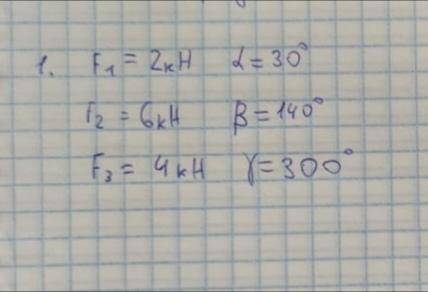 1. F₁ = 2кН α = 30°
F₂ = 6кН β = 140°
F₃ = 4кН γ = 300°